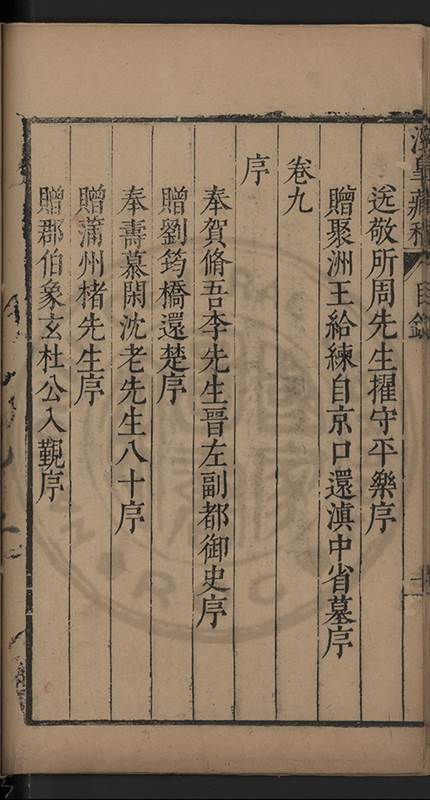 涇臯藏稿 目錄
送敬所周先生擢守平樂序
贈聚洲王給練自京口還滇中省墓序
卷九
序
奉賀脩吾李先生晉左副都御史序
贈劉筠橋還楚序
奉壽慕閑沈老先生八十序
贈蒲州楮先生序
贈郡伯象玄杜公入覲序